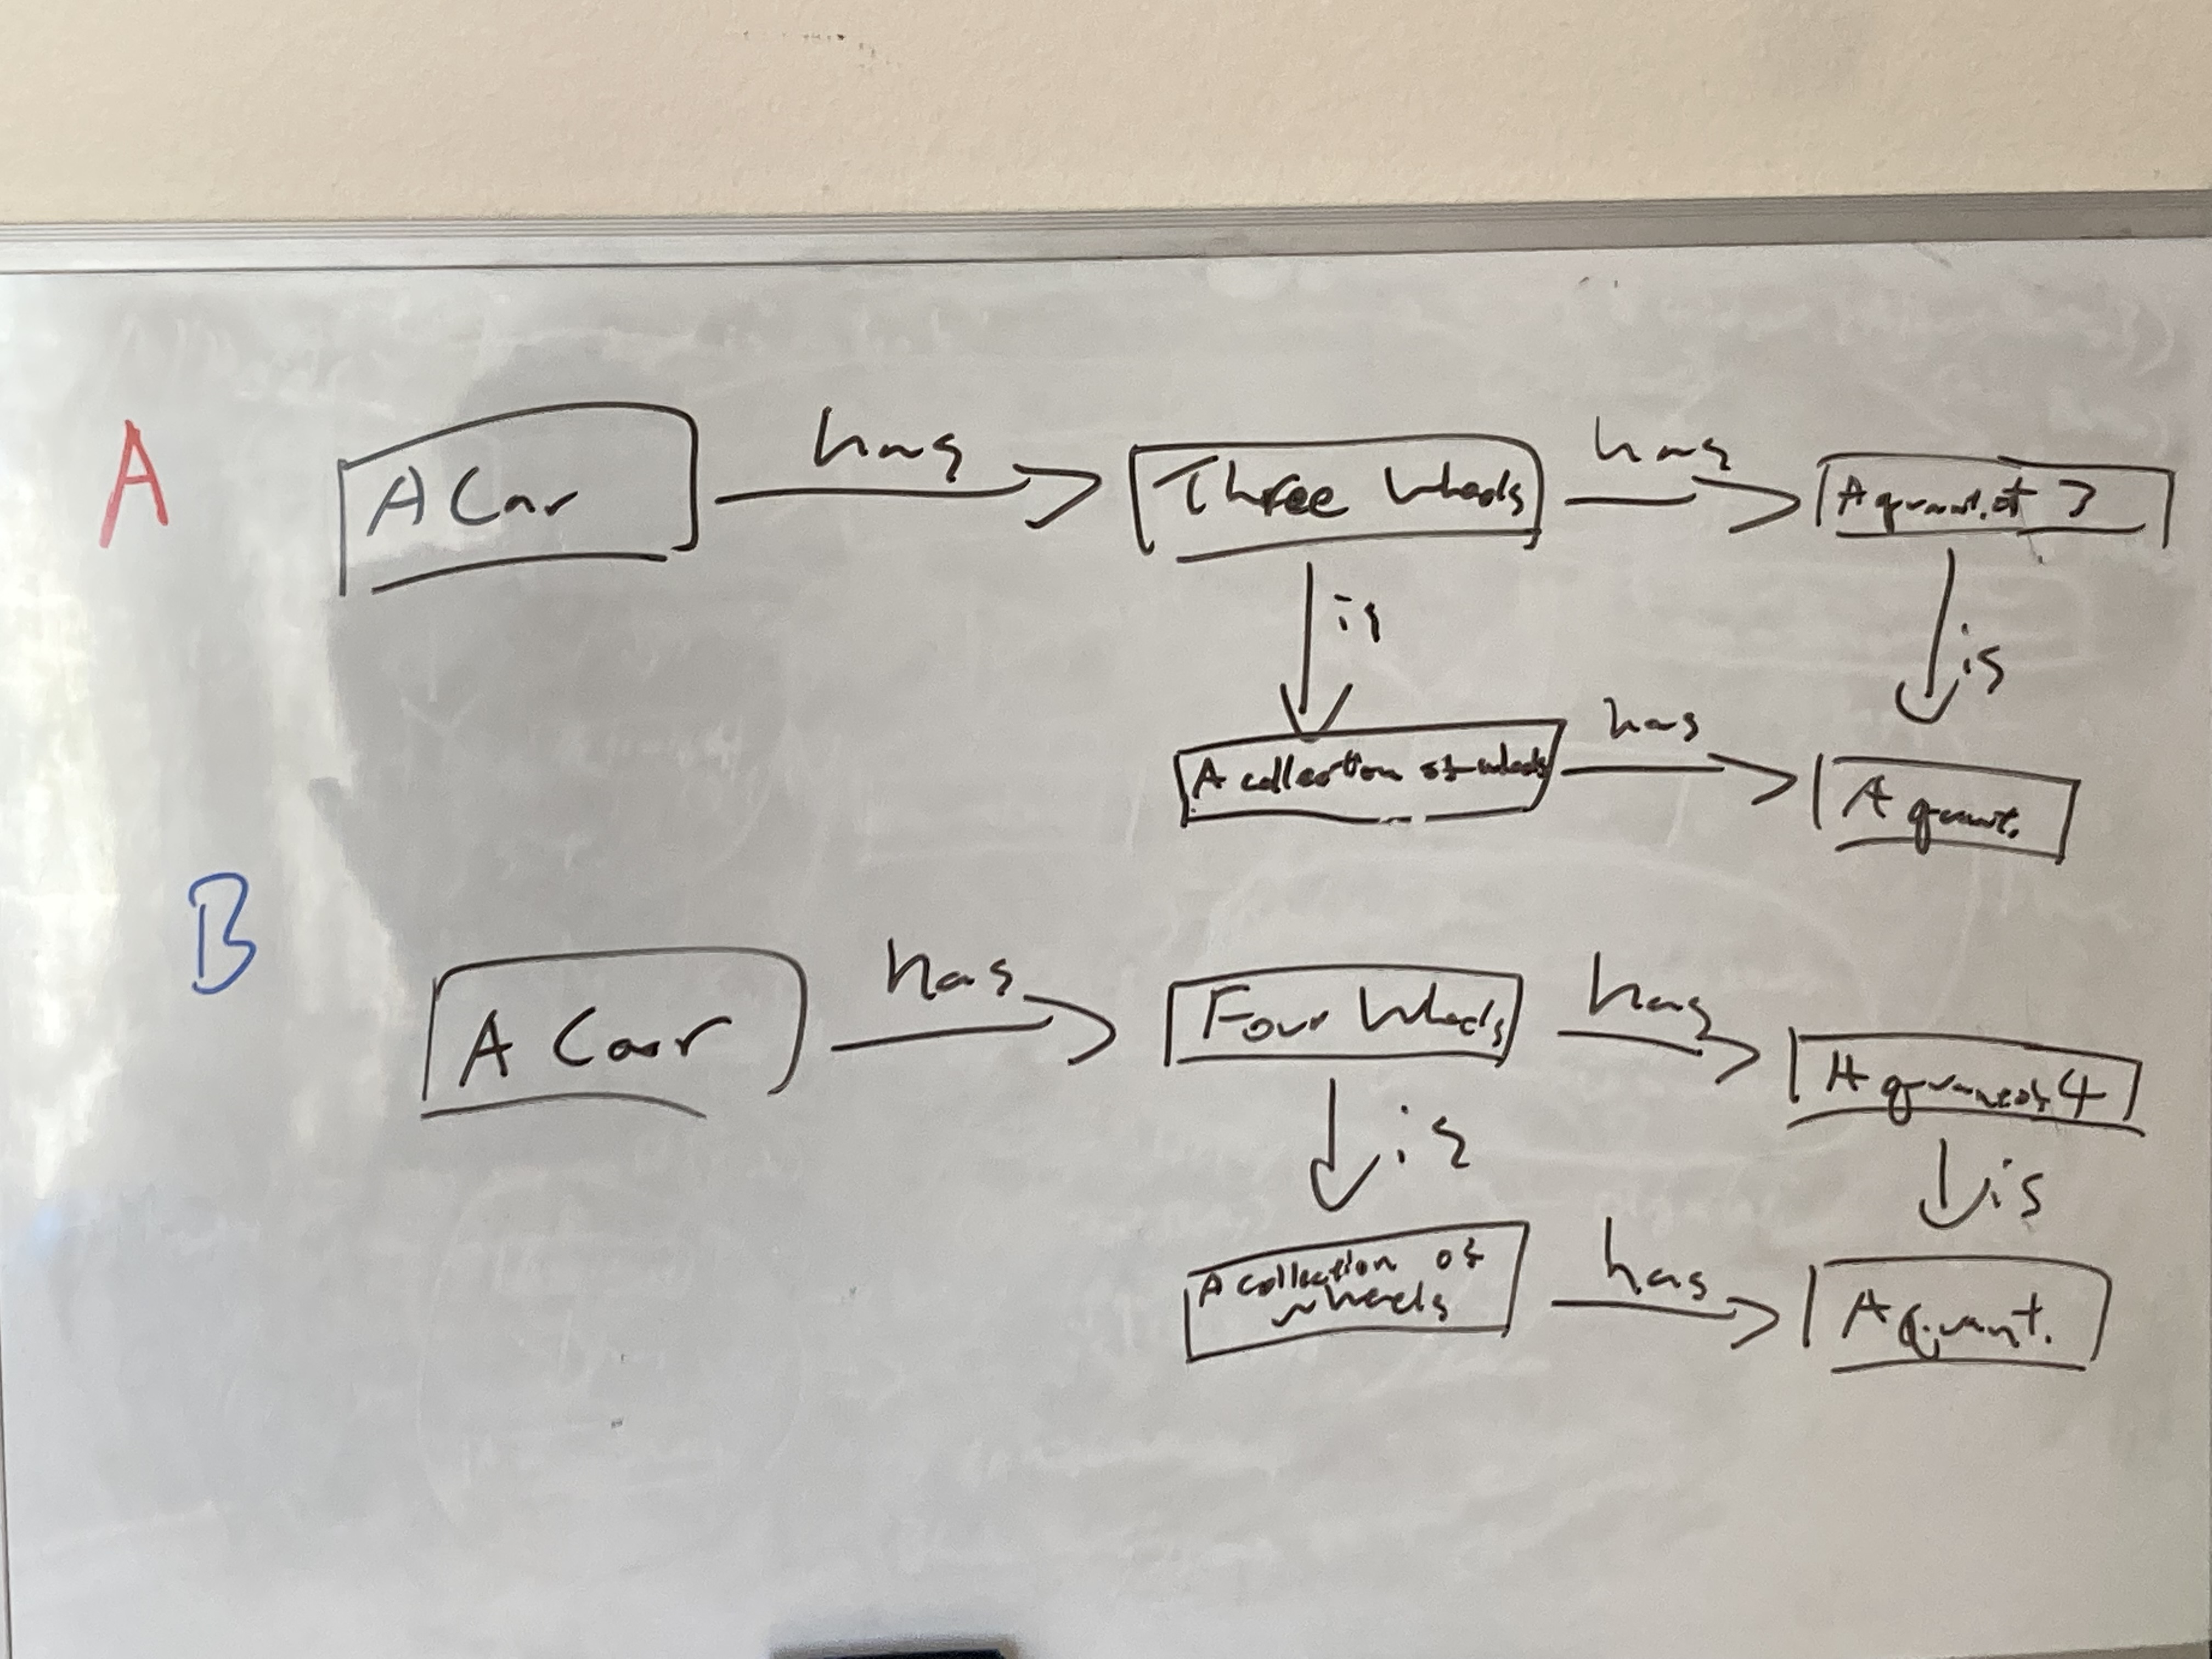 A
A Car
has
Three Wheels
has
A quant. of 3
is
is
A collection of wheels
has
A quant.
B
A Car
has
Four Wheels
has
A quant of 4
is
is
A collection of
wheels
has
A quant.